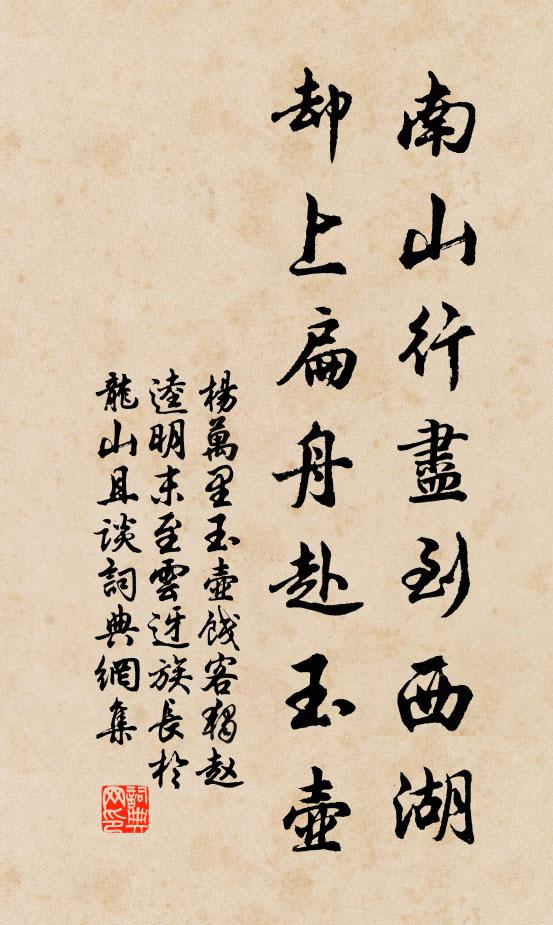 南山行盡到西湖
却上扁舟赴玉壺
楊萬里玉壺餞客獨趙
逵明未至雲迓族長於
龍山且談詞典網集
詞典網印